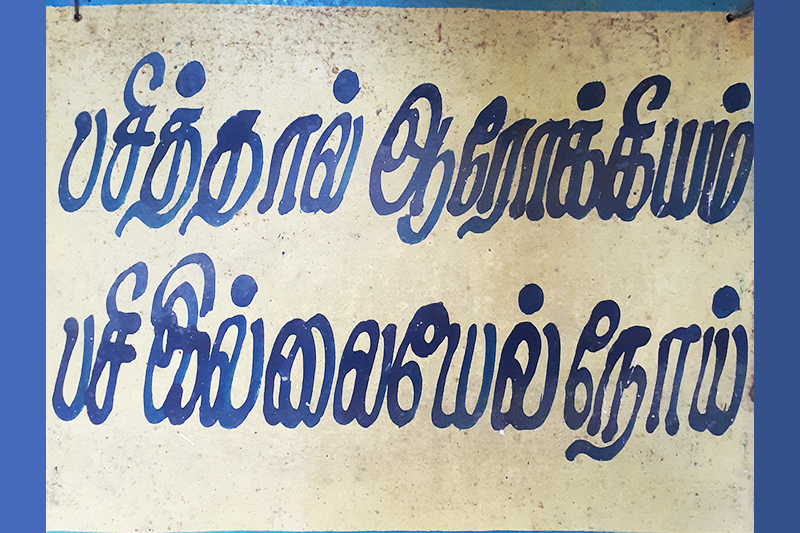 பசித்தால் ஆரோக்கியம்
பசி இல்லையேல் நோய்